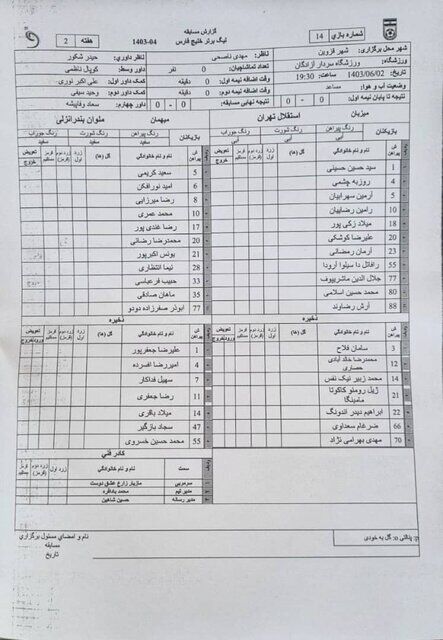 گزارش مسابقه
لیگ برتر خلیج فارس 04-1403
شماره بازی: 14
هفته: 2
شهر محل برگزاری: شهر قزوین
ناظر: مهدی ناصحی
ناظر داوری: حیدر شکور
ورزشگاه: ورزشگاه سردار آزادگان
تعداد تماشاچیان: 0 نفر
داور وسط: کوپال ناظمی
تاریخ: 1403/06/02 ساعت: 19:30
وقت اضافه نیمه اول: 0 دقیقه
کمک داور اول: علی اکبر نوری
وضعیت آب و هوا: مساعد
وقت اضافه نیمه دوم: 0 دقیقه
کمک داور دوم: وحید سیفی
نتیجه تا پایان نیمه اول: 0 - 0
نتیجه نهایی مسابقه: 0 - 0
داور چهارم:
میزبان استقلال تهران
میهمان ملوان بندرانزلی
بازیکنان رنگ پیراهن آبی رنگ شورت آبی رنگ جوراب آبی
بازیکنان رنگ پیراهن سفید رنگ شورت سفید رنگ جوراب سفید
نام و نام خانوادگی گل (ها)
نام و نام خانوادگی گل (ها)
1 سید حسین حسینی
5 سعید کریمی
4 روزبه چشمی
6 امید نورافکن
5 آرمین سهرابیان
8 رضا میرزایی
10 رامین رضاییان
10 محمد عمری
18 میلاد زکی پور
17 رضا غندی پور
20 علیرضا کوشکی
20 محمدرضا رضائی
23 آرمان رمضانی
21 یونس اکبرپور
55 رافائل دا سیلوا آرودا
28 نیما انتظاری
77 جلال الدین ماشاریپوف
33 حبیب فرعباسی
80 محمد حسین اسلامی
35 ماهان صادقی
88 آرش رضاوند
77 ابوذر صفرزاده دودو
ذخیره
ذخیره
نام و نام خانوادگی گل (ها)
نام و نام خانوادگی گل (ها)
3 سامان فلاح
1 علیرضا جعفرپور
12 محمدرضا خالد آبادی حصاری
4 امیررضا افسرده
14 محمد زبیر نیک نفس
7 سهیل فداکار
21 ژیل رومئو کاکوتا مامینگا
11 رضا جعفری
22 ابراهیم دیدر اندونگ
14 میلاد باقری
66 ضرغام سعداوی
47 سجاد بازگیر
70 مهدی بهرامی نژاد
55 محمد حسین خسروی
کادر فنی
سمت نام و نام خانوادگی
سرمربی مازیار زارع عشق دوست
سرپرست تیم
مدیر رسانه حسین شاهین
p: پنالتی o: گل به خودی
نام و امضای مسئول برگزاری
مسابقه
تاریخ